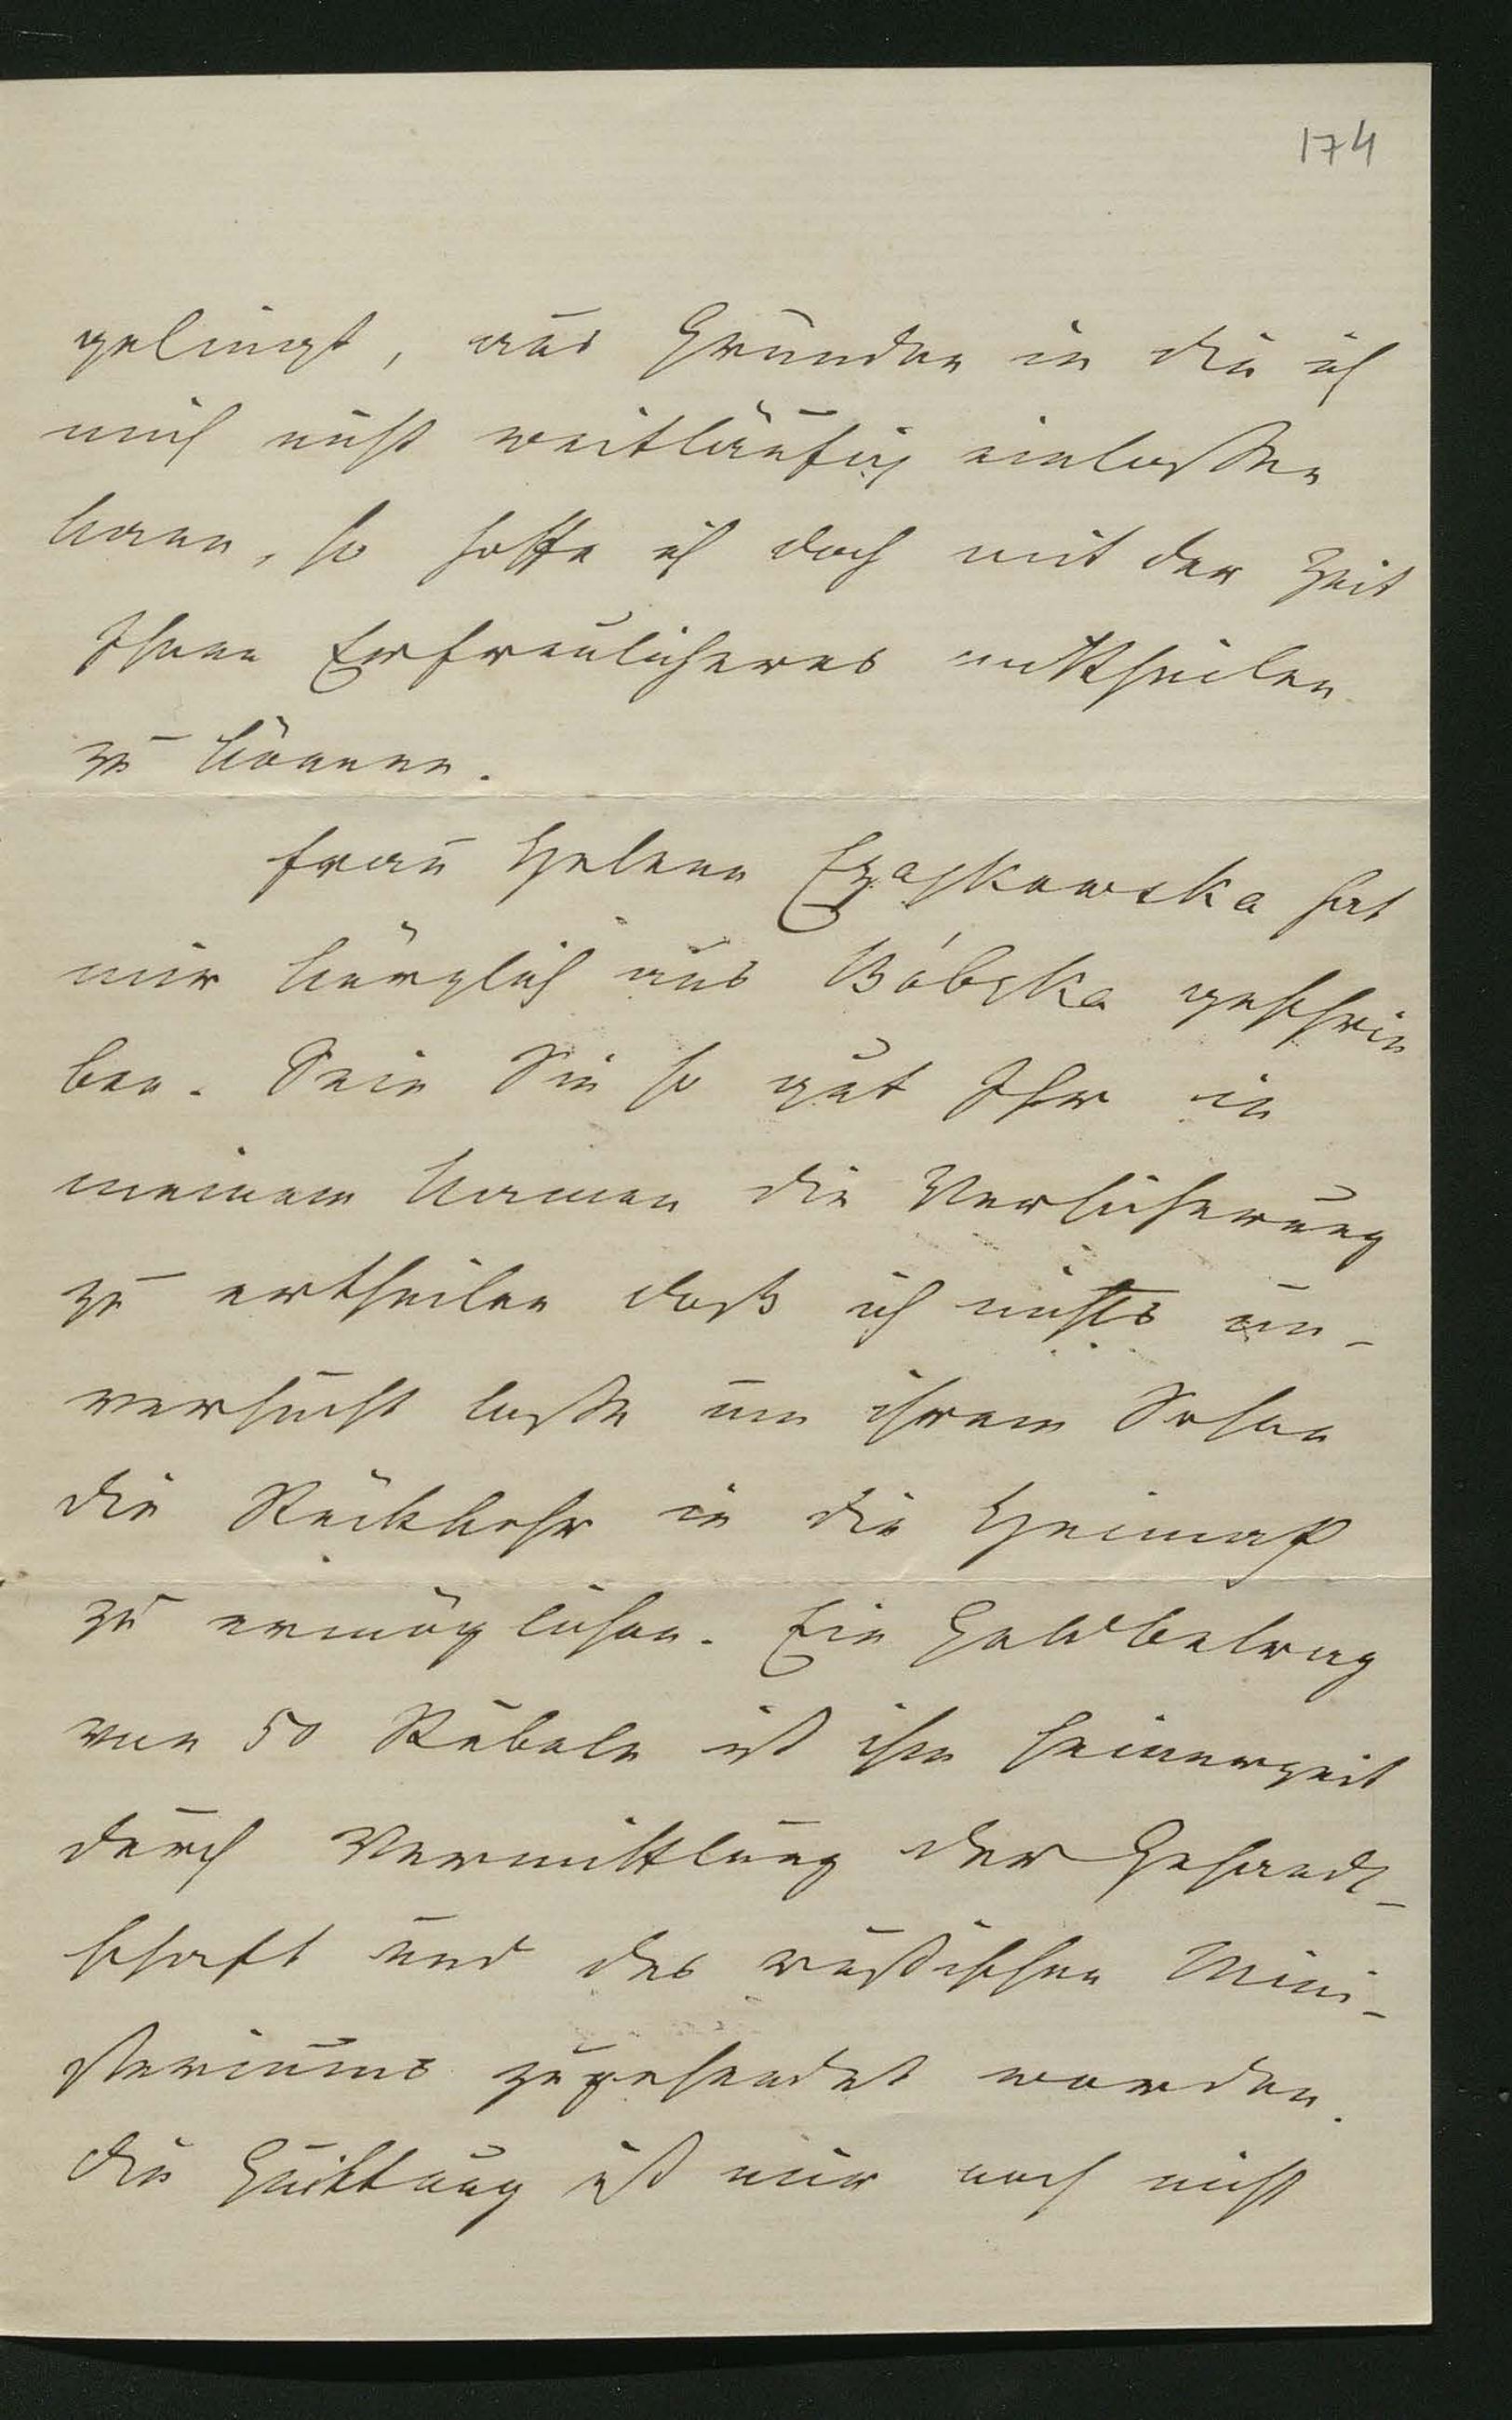 174
gelingt, aus Gründen in die ich
mich nicht weitläufig einlaßen
kann, so hoffe ich doch mit der Zeit
Ihnen Erfreulicheres mittheilen
zu können.
Frau Helene Czajkowska hat
mir kürzlich aus Bóbrka geschrie
ben. Sein Sie so gut Ihr in
meinem Namen die Versicherung
zu ertheilen daß ich nichts un-
versucht laße um ihrem Sohne
die Rückkehr in die Heimath
zu ermöglichen. Ein Geldbetrag
von 50 Rubeln ist ihm seinerzeit
durch Vermittlung der Gesandt-
schaft und des rußischen Mini-
steriums zugesendet worden.
Die Quittung ist mir noch nicht